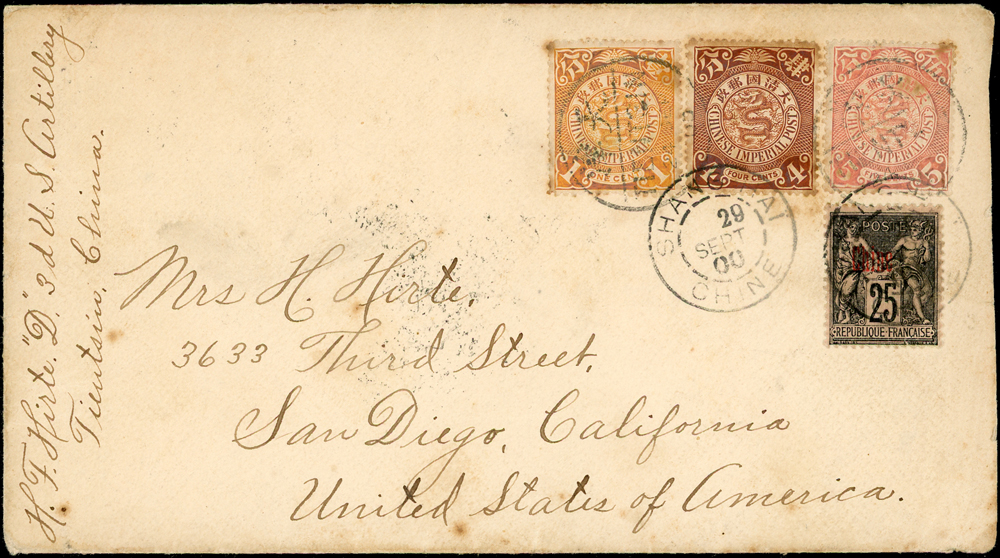 H. F. Hirte. "D." 3d U. S. Artillery
Tientsin, China.
大清國郵政
CHINESE IMPERIAL POST
1 ONE CENT 1
大清國郵政
CHINESE IMPERIAL POST
4 FOUR CENTS 4
CHINESE IMPERIAL POST
5 5
SHANG AI
29
SEPT
00
CHINE
POSTES
Chine
25
REPUBLIQUE FRANÇAISE
Mrs H. Hirte.
3633 Third Street.
San Diego, California
United States of America.